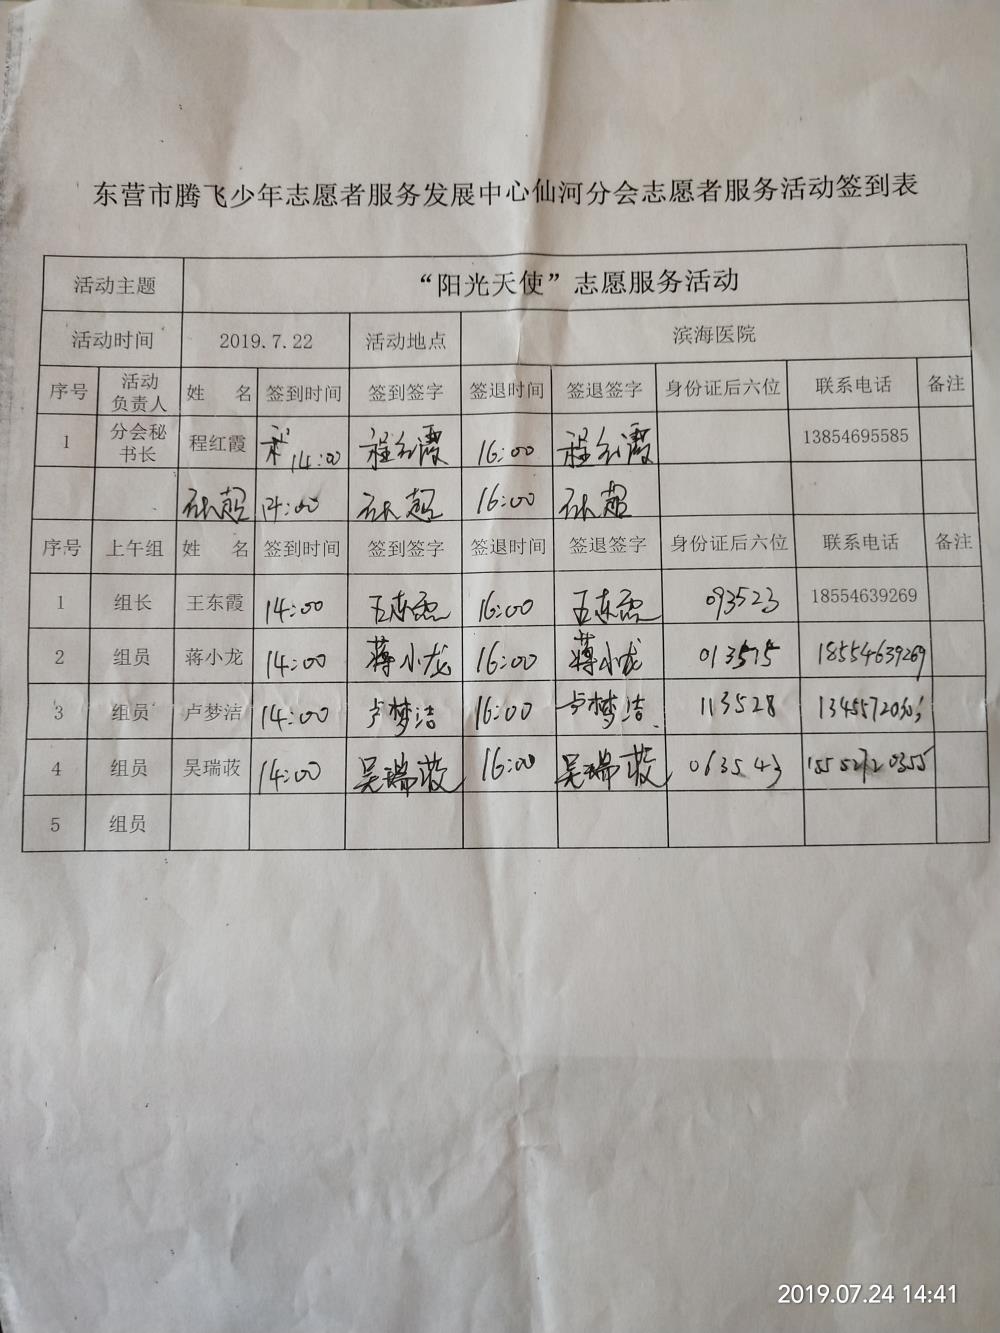 东营市腾飞少年志愿者服务发展中心仙河分会志愿者服务活动签到表
活动主题 “阳光天使”志愿服务活动
活动时间 2019.7.22 活动地点 滨海医院
序号 活动负责人 姓 名 签到时间 签到签字 签退时间 签退签字 身份证后六位 联系电话 备注
1 分会秘书长 程红霞 14:00 程红霞 16:00 程红霞 13854695585
张超 14:00 张超 16:00 张超
序号 上午组 姓 名 签到时间 签到签字 签退时间 签退签字 身份证后六位 联系电话 备注
1 组长 王东霞 14:00 王东霞 16:00 王东霞 093523 18554639269
2 组员 蒋小龙 14:00 蒋小龙 16:00 蒋小龙 013575 18554639269
3 组员 卢梦洁 14:00 卢梦洁 16:00 卢梦洁 113528
4 组员 吴瑞苡 14:00 16:00 063543
5 组员
2019.07.24 14:41